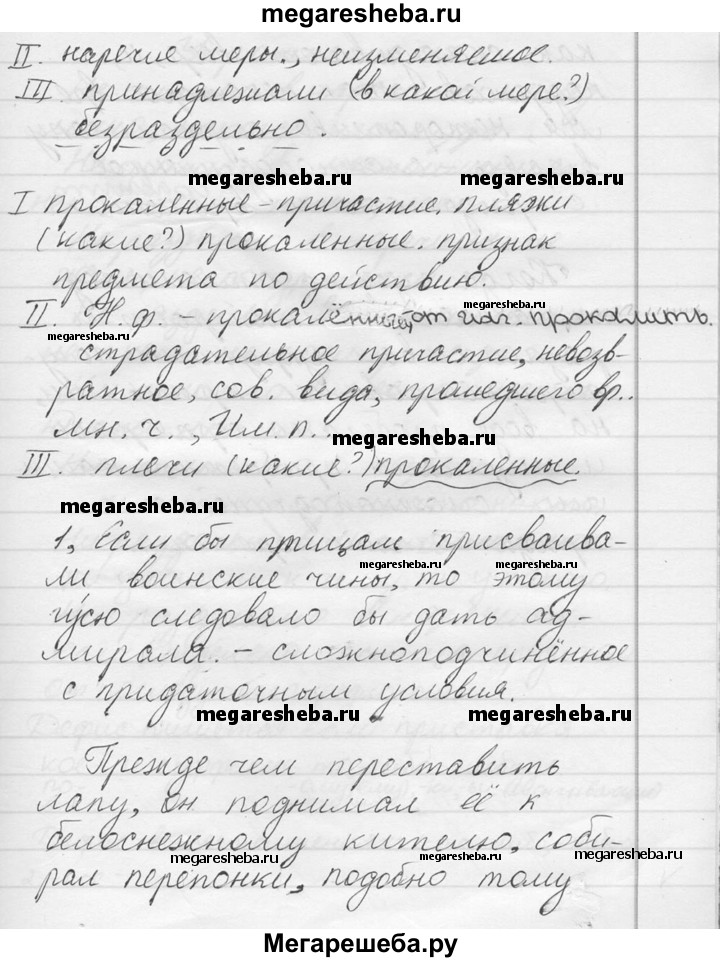 megaresheba.ru
II. наречие меры., неизменяемое.
III. принадлежали (в какой мере?)
безраздельно.
megaresheba.ru megaresheba.ru
I прокаленные - причастие. пляжи
(какие?) прокаленные. признак
предмета по действию.
megaresheba.ru
II. Н.ф. - прокалённый, от глаг. прокалить.
megaresheba.ru
страдательное причастие, невозв-
ратное, сов. вида, прошедшего вр..
мн. ч., Им. п..
megaresheba.ru
III. плечи (какие?) прокаленные.
megaresheba.ru
1, Если бы птицам присваива-
ли воинские чины, то этому
гусю следовало бы дать ад-
мирала. - сложноподчинённое
с придаточным условия.
megaresheba.ru megaresheba.ru
Прежде чем переставить
лапу, он поднимал её к
белоснежному кителю, соби-
megaresheba.ru megaresheba.ru megaresheba.ru
рал перепонки, подобно тому
Мегарешеба.ру